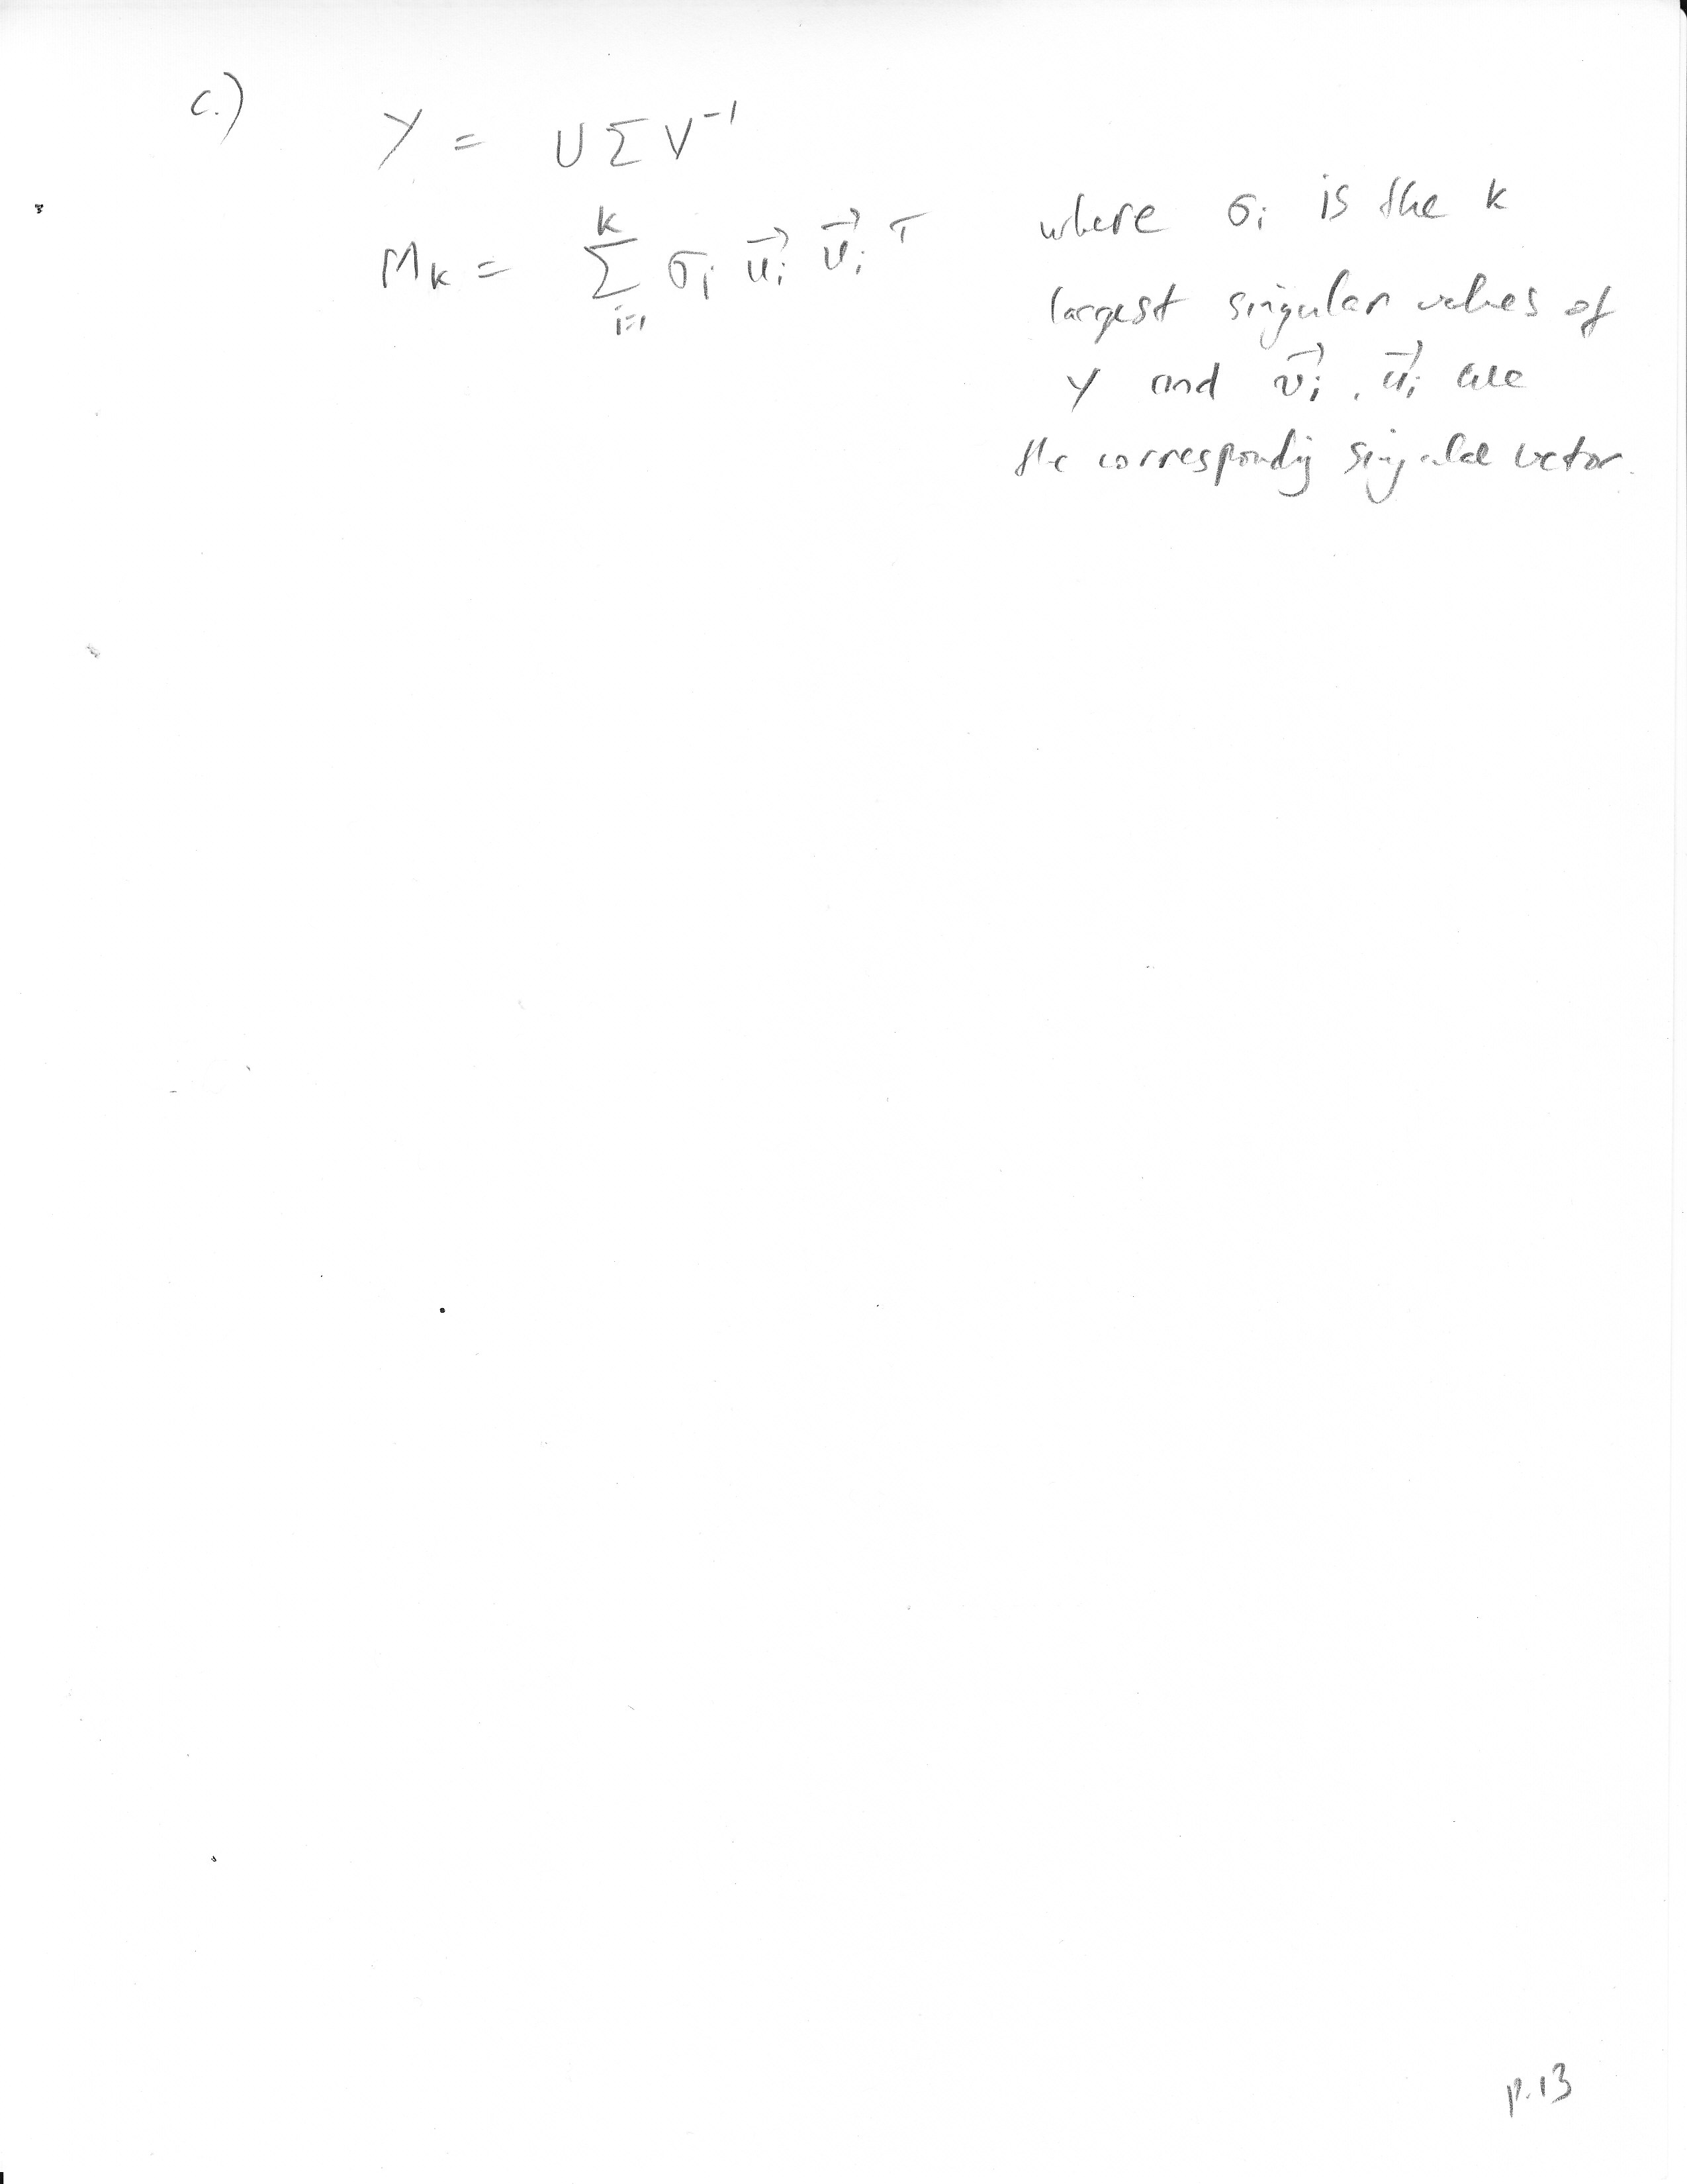 c.)
Y = U Σ V⁻¹
M_k = Σ_{i=1}^{k} σ_i u⃗_i v⃗_i^T
where σ_i is the k
largest singular values of
Y and v⃗_i, u⃗_i are
the corresponding singular vector.
p.13